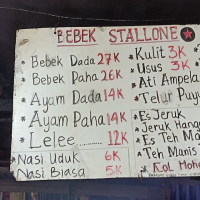 BEBEK STALLONE
Bebek Dada 27K
Bebek Paha 26K
Ayam Dada 14K
Ayam Paha 14K
Lelee.......... 12K
Nasi Uduk 6K
Nasi Biasa 5K
Kulit 3K
Usus 3K
Ati Ampela
Telur Puyu
Es Jeruk
Jeruk Hang
Es Teh Man
Teh Manis
Kol